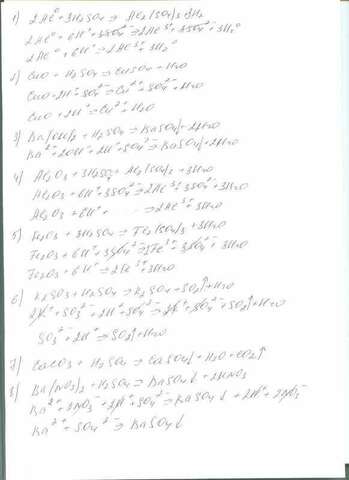 1) 2Al⁰ + 3H₂SO₄ ⇒ Al₂(SO₄)₃ + 3H₂
2Al⁰ + 6H⁺ + 3SO₄²⁻ ⇒ 2Al³⁺ + 3SO₄²⁻ + 3H₂⁰
2Al⁰ + 6H⁺ ⇒ 2Al³⁺ + 3H₂⁰
2) CuO + H₂SO₄ ⇒ CuSO₄ + H₂O
CuO + 2H⁺ + SO₄²⁻ ⇒ Cu²⁺ + SO₄²⁻ + H₂O
CuO + 2H⁺ ⇒ Cu²⁺ + H₂O
3) Ba(OH)₂ + H₂SO₄ ⇒ BaSO₄↓ + 2H₂O
Ba²⁺ + 2OH⁻ + 2H⁺ + SO₄²⁻ ⇒ BaSO₄↓ + 2H₂O
4) Al₂O₃ + 3H₂SO₄ ⇒ Al₂(SO₄)₃ + 3H₂O
Al₂O₃ + 6H⁺ + 3SO₄²⁻ ⇒ 2Al³⁺ + 3SO₄²⁻ + 3H₂O
Al₂O₃ + 6H⁺ ⇒ 2Al³⁺ + 3H₂O
5) Fe₂O₃ + 3H₂SO₄ ⇒ Fe₂(SO₄)₃ + 3H₂O
Fe₂O₃ + 6H⁺ + 3SO₄²⁻ ⇒ 2Fe³⁺ + 3SO₄²⁻ + 3H₂O
Fe₂O₃ + 6H⁺ ⇒ 2Fe³⁺ + 3H₂O
6) K₂SO₃ + H₂SO₄ ⇒ K₂SO₄ + SO₂↑ + H₂O
2K⁺ + SO₃²⁻ + 2H⁺ + SO₄²⁻ ⇒ 2K⁺ + SO₄²⁻ + SO₂↑ + H₂O
SO₃²⁻ + 2H⁺ ⇒ SO₂↑ + H₂O
7) CaCO₃ + H₂SO₄ ⇒ CaSO₄↓ + H₂O + CO₂↑
8) Ba(NO₃)₂ + H₂SO₄ ⇒ BaSO₄↓ + 2HNO₃
Ba²⁺ + 2NO₃⁻ + 2H⁺ + SO₄²⁻ ⇒ BaSO₄↓ + 2H⁺ + 2NO₃⁻
Ba²⁺ + SO₄²⁻ ⇒ BaSO₄↓